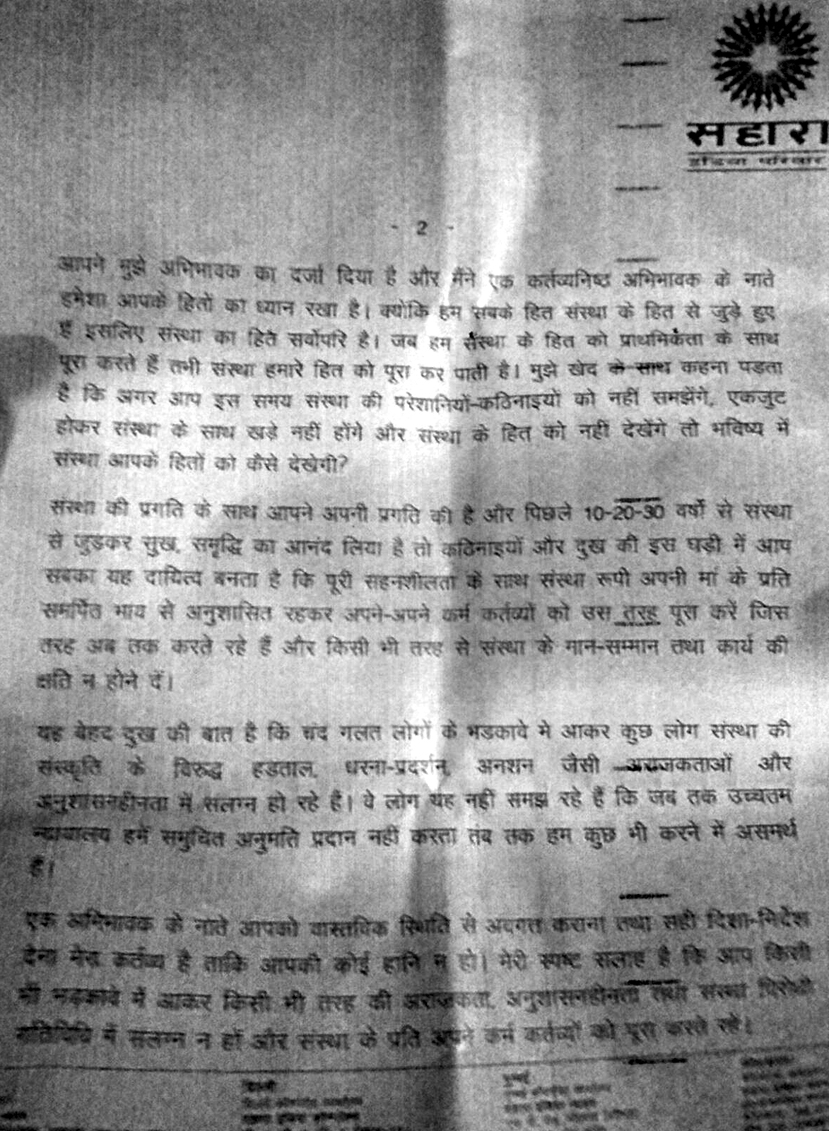 सहारा
इंडिया परिवार
- 2 -
आपने मुझे अभिभावक का दर्जा दिया है और मैंने एक कर्तव्यनिष्ठ अभिभावक के नाते
हमेशा आपके हितों का ध्यान रखा है। क्योंकि हम सबके हित संस्था के हित से जुड़े हुए
हैं इसलिए संस्था का हित सर्वोपरि है। जब हम संस्था के हित को प्राथमिकता के साथ
पूरा करते हैं तभी संस्था हमारे हित को पूरा कर पाती है। मुझे खेद के साथ कहना पड़ता
है कि अगर आप इस समय संस्था की परेशानियों-कठिनाइयों को नहीं समझेंगे, एकजुट
होकर संस्था के साथ खड़े नहीं होंगे और संस्था के हित को नहीं देखेंगे तो भविष्य में
संस्था आपके हितों को कैसे देखेगी?
संस्था की प्रगति के साथ आपने अपनी प्रगति की है और पिछले 10-20-30 वर्षो से संस्था
से जुड़कर सुख, समृद्धि का आनंद लिया है तो कठिनाइयों और दुख की इस घड़ी में आप
सबका यह दायित्व बनता है कि पूरी सहनशीलता के साथ संस्था रूपी अपनी मां के प्रति
समर्पित भाव से अनुशासित रहकर अपने-अपने कर्म कर्तव्यों को उस तरह पूरा करें जिस
तरह अब तक करते रहे हैं और किसी भी तरह से संस्था के मान-सम्मान तथा कार्य की
क्षति न होने दें।
यह बेहद दुख की बात है कि चंद गलत लोगों के भडकावे मे आकर कुछ लोग संस्था की
संस्कृति के विरुद्ध हडताल, धरना-प्रदर्शन, अनशन जैसी अराजकताओं और
अनुशासनहीनता में सलग्न हो रहे है। वे लोग यह नहीं समझ रहे हैं कि जब तक उच्चतम
न्यायालय हमें समुचित अनुमति प्रदान नहीं करता तब तक हम कुछ भी करने में असमर्थ
हैं।
एक अभिभावक के नाते आपको वास्तविक स्थिति से अवगत कराना तथा सही दिशा-निर्देश
देना मेरा कर्तव्य है ताकि आपकी कोई हानि न हो। मेरी स्पष्ट सलाह है कि आप किसी
भी भड़कावे में आकर किसी भी तरह की अराजकता, अनुशासनहीनता तथा संस्था विरोधी
गतिविधि में सलग्न न हों और संस्था के प्रति अपने कर्म कर्तव्यों को पूरा करते रहें।